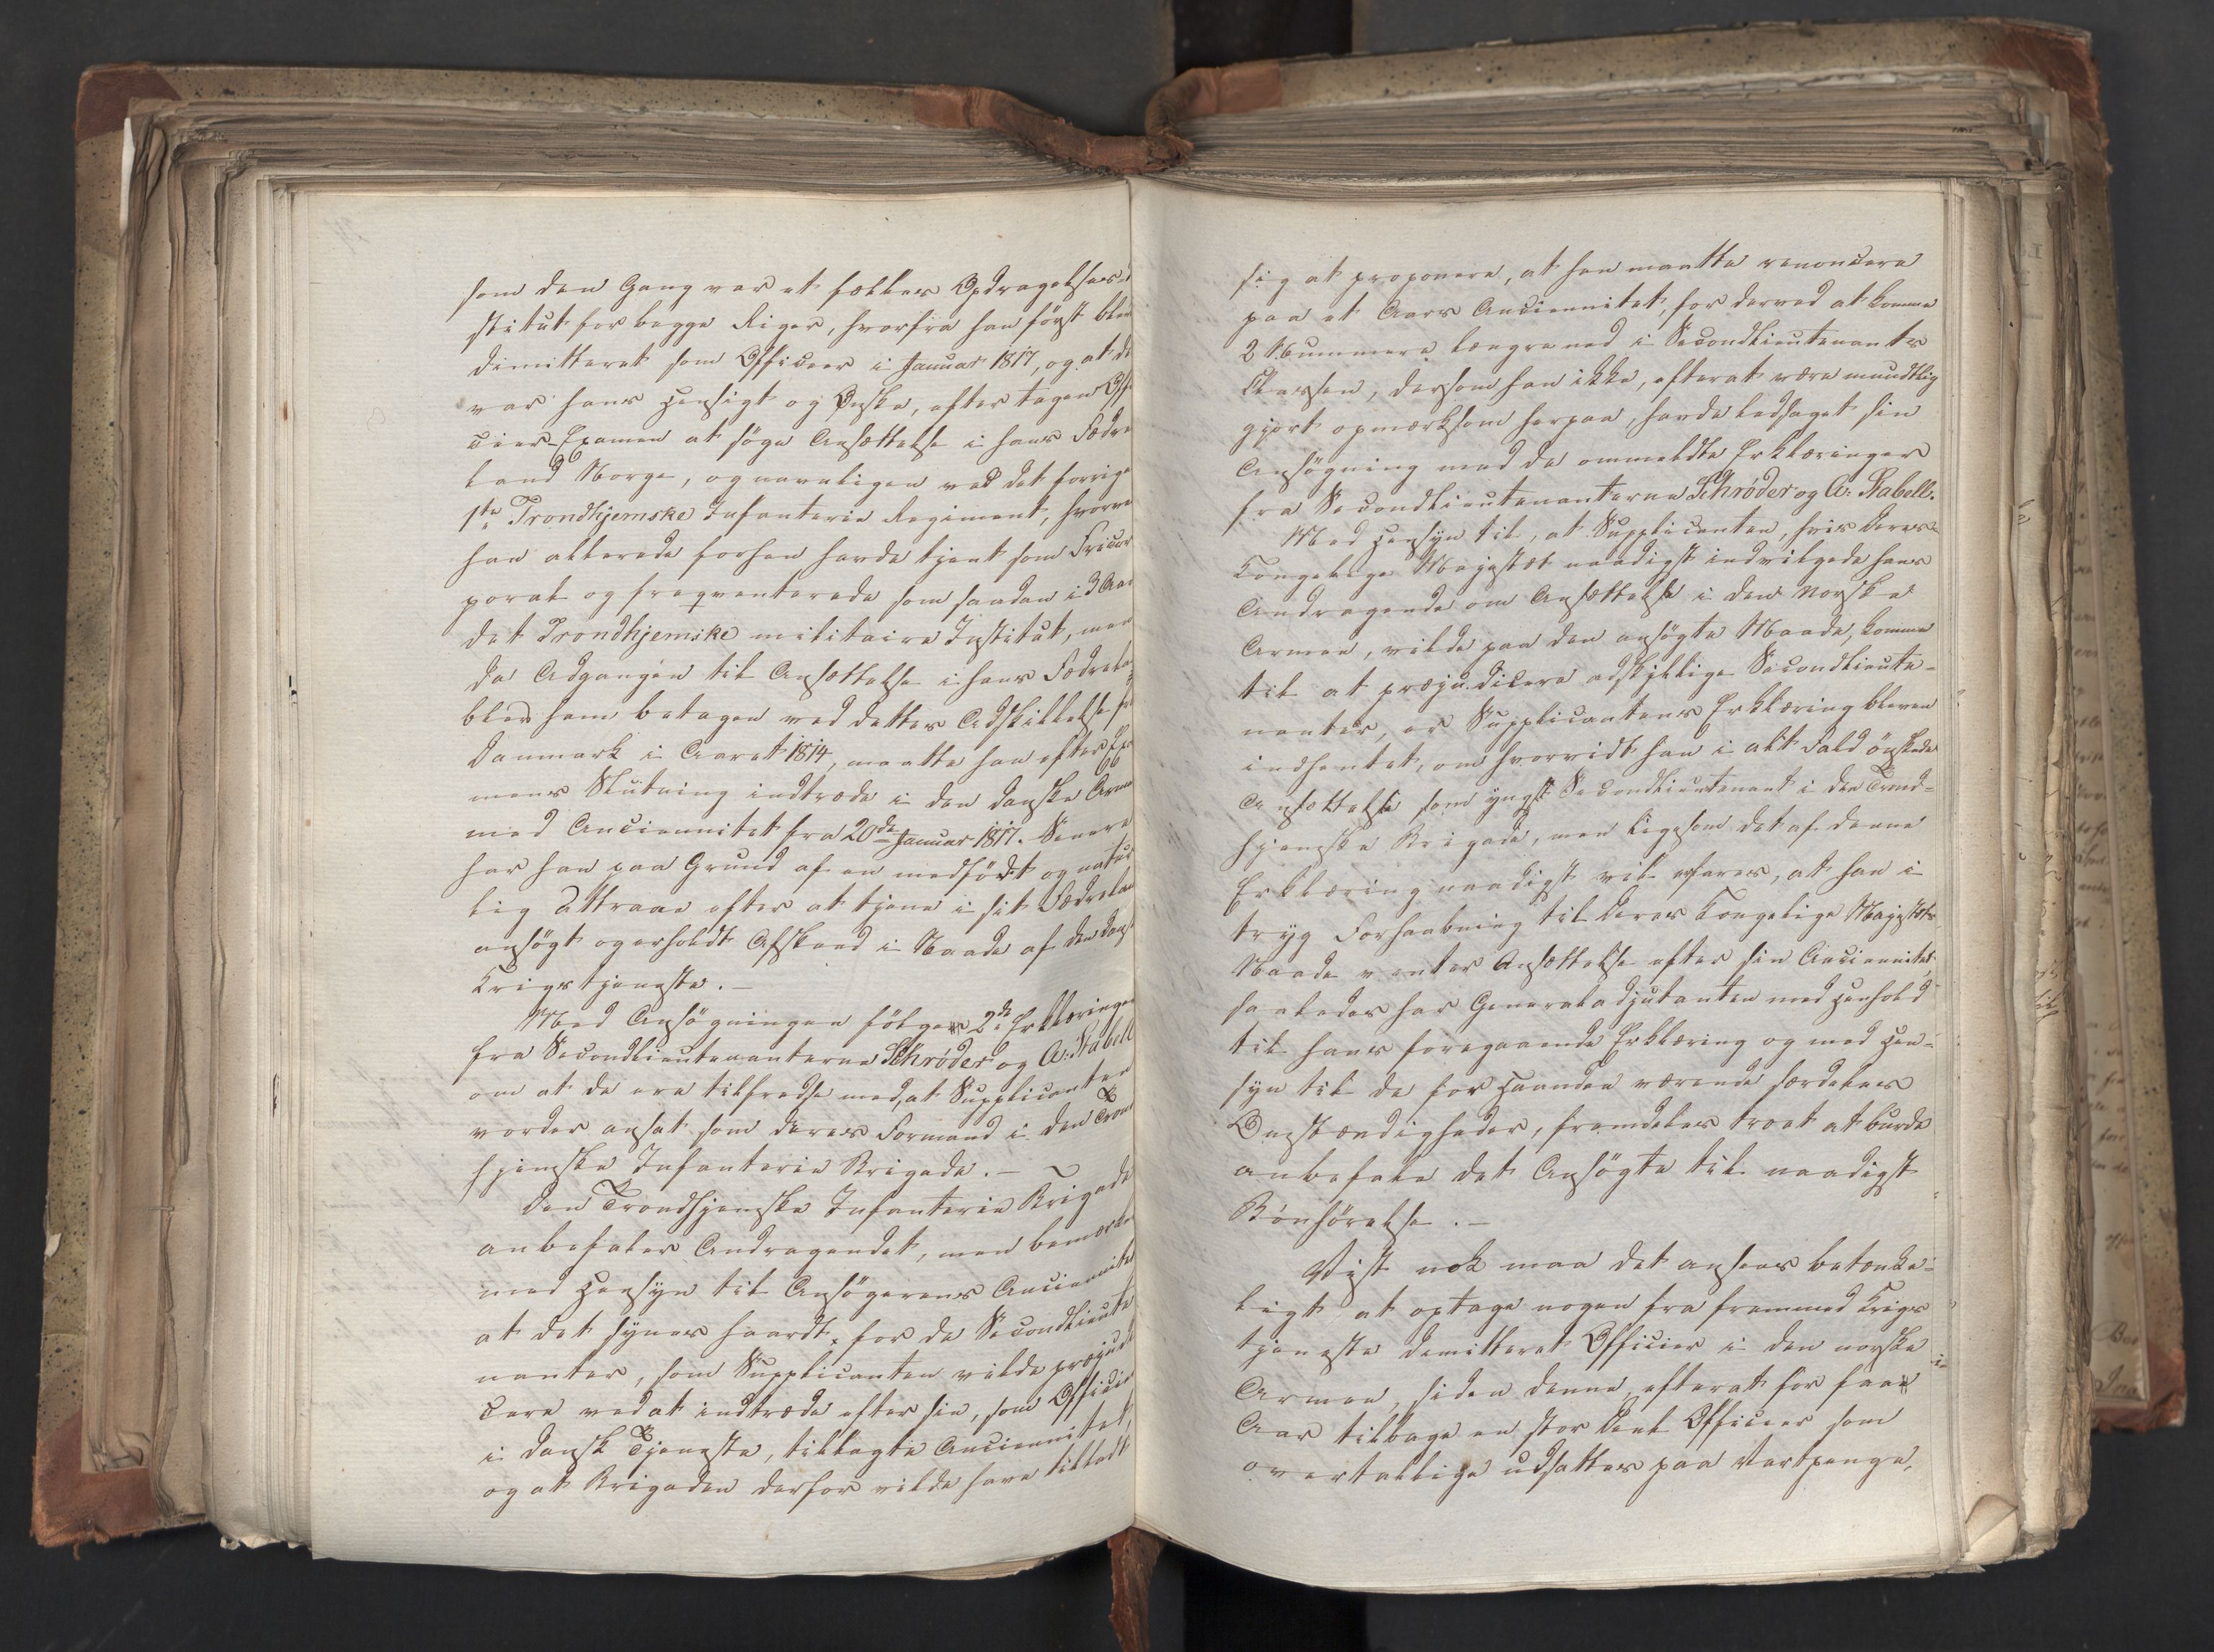 som den Gang var et fælleds Opdragelses I
stitut for begge Riger, hvorfra han först blev
dimitteret som Officeer i Januar 1817, og at de
var hans Hensigt og Ønske, efter tagen Offi
cier-Examen at söge Ansættelse i hans Fædre
land Norge, og navnligen ved det forrige
1ste Trondhjemske Infanterie Regiment, hvorve
han allerede forhen havde tjent som Fricor
poral og freqventerede som saadan i 3 Aar
det Trondhjemske militaire Institut, men
da Adgangen til Ansættelse i hans Fædrela
blev ham betagen ved dettes Adskillelse fr
Danmark i Aaret 1814, maatte han efter Exa
mens Slutning indtræde i den danske Arme
med Anciennitet fra 20de Januar 1817. Senere
har han paa Grund af en medfödt og natur
lig Attraae efter at tjene i sit Fædrelan
ansögt og erholdt Afskeed i Naade af den dansk
Krigstjeneste.-
Med Ansögningen fölger 2de Erklæringer
fra Secondlieutenanterne Schrøder og A: Stabell
om at de ere tilfredse med, at Supplicanten
vorder ansat som deres Formand i den Trond
hjemske Infanterie Brigade.-
Den Trondhjemske Infanterie Brigade
anbefaler Andragendet, men bemærke
med Hensyn til Ansögerens Anciennitet
at det synes haardt for de Secondlieute
nanter, som Supplicanten vilde præjudi
cere ved at indtræde efter sin, som Officie
i dansk Tjeneste, tillagte Anciennitet,
og at Brigaden derfor vilde have tilladt
sig at proponere, at han maatte renoncere
paa et Aars Anciennitet, for derved at komme
2 Nummere længre ned i Secondlieutenants
Classen, dersom han ikke, efterat være mundtlig
gjort opmærksom herpaa, havde ledsaget sin
Ansögning med de ommeldte Erklæringer
fra Secondlieutenanterne Schrøder og A: Stabell.
Med Hensyn til, at Supplicanten, hvis Deres
Kongelige Majestæt naadigst indvilgede hans
Andragende om Ansættelse i den norske
Armee, vilde paa den ansögte Maade, komme
til at præjudicere adskillige Secondlieute-
nanter, er Supplicantens Erklæring bleven
indhentet, om hvorvidt han i alt Fald önskede
Ansættelse som yngst Secondlieutenant i den Trond-
hjemske Brigade, men ligesom det af denne
Erklæring naadigst vil erfares, at han i
tryg Forhaabning til Deres Kongelige Majestæts
Naade venter Ansættelse efter sin Anciennitet
saaledes har Generaladjutanten med Henhold
til hans foregaaende Erklæring og med Hen-
syn til de for Haanden værende særdeles
Omstændigheder, fremdeles troet at burde
anbefale det Ansögte til naadigst
Bönhörelse.-
Vist nok maa det ansees betænke-
ligt at optage nogen fra fremmed Krigs
tjeneste demitteret Officier i den norske
Armee, siden denne, efterat for faae
Aar tilbage en stor Deel Officerer som
overtallige udsattes paa Vartpenge,